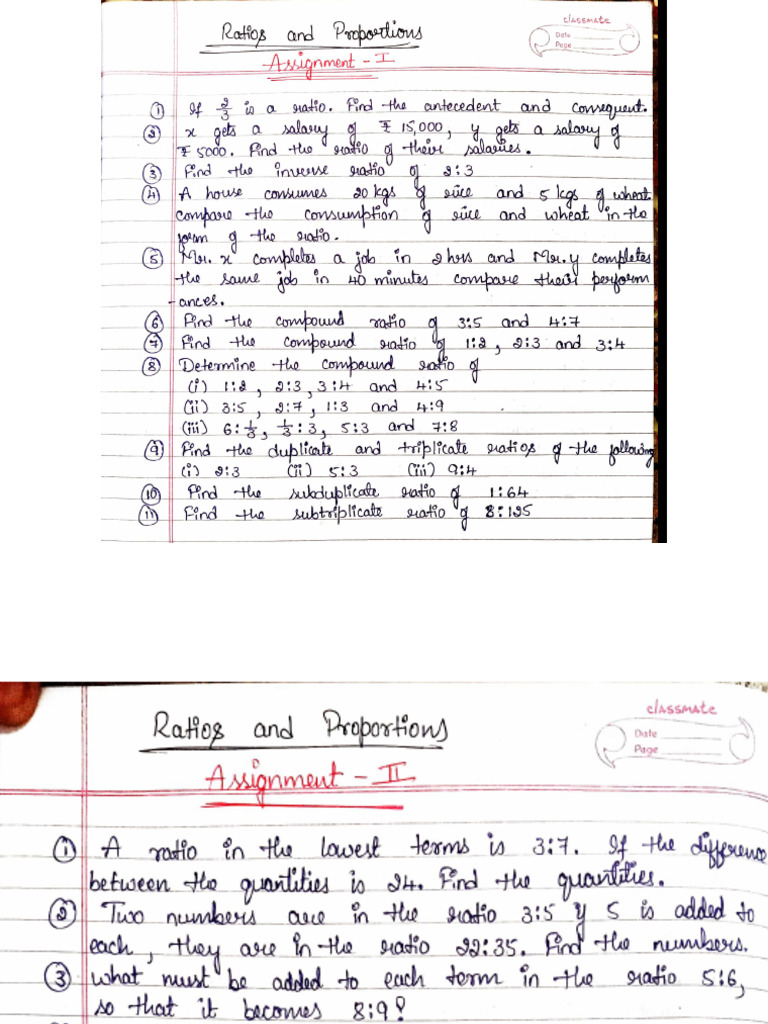 classmate
Date
Page
Ratios and Proportions
Assignment - I
① If 2/3 is a ratio. Find the antecedent and consequent.
② x gets a salary of ₹ 15,000, y gets a salary of
₹ 5000. Find the ratio of their salaries.
③ Find the inverse ratio of 2:3
④ A house consumes 20 kgs of rice and 5 kgs of wheat
compare the consumption of rice and wheat in the
form of the ratio.
⑤ Mr. x completes a job in 2 hrs and Mr. y completes
the same job in 40 minutes compare their perform
-ances.
⑥ Find the compound ratio of 3:5 and 4:7
⑦ Find the compound ratio of 1:2, 2:3 and 3:4
⑧ Determine the compound ratio of
(i) 1:2, 2:3, 3:4 and 4:5
(ii) 3:5, 2:7, 1:3 and 4:9
(iii) 6:1/3, 1/3:3, 5:3 and 7:8
⑨ Find the duplicate and triplicate ratios of the following
(i) 2:3 (ii) 5:3 (iii) 9:4
⑩ Find the subduplicate ratio of 1:64
⑪ Find the subtriplicate ratio of 8:125
classmate
Date
Page
Ratios and Proportions
Assignment - II
① A ratio in the lowest terms is 3:7. If the difference
between the quantities is 24. Find the quantities.
② Two numbers are in the ratio 3:5 if 5 is added to
each, they are in the ratio 22:35. Find the numbers.
③ what must be added to each term in the ratio 5:6,
so that it becomes 8:9?